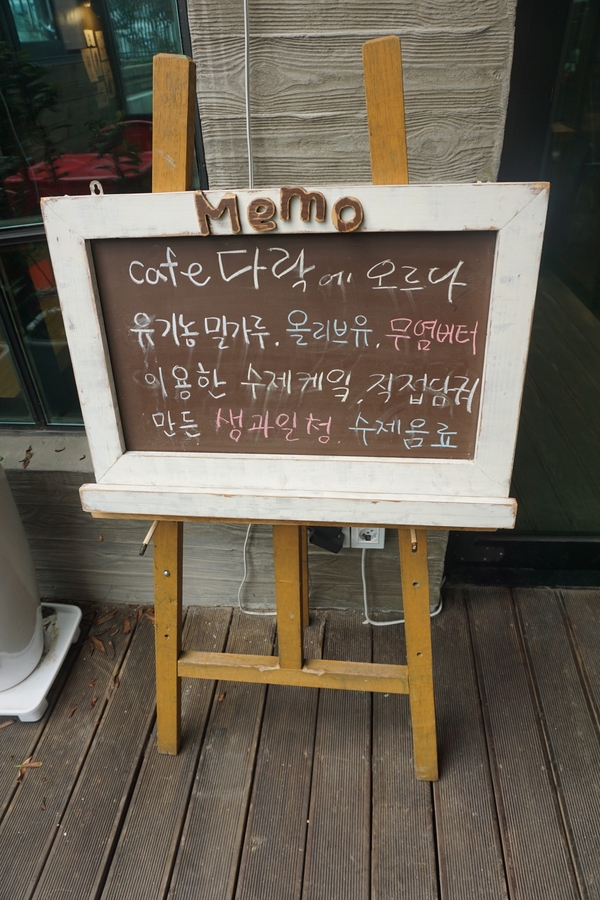 Memo
cafe 다락에 오르다
유기농밀가루. 올리브유. 무염버터
이용한 수제케익. 직접담궈
만든 생과일청. 수제음료